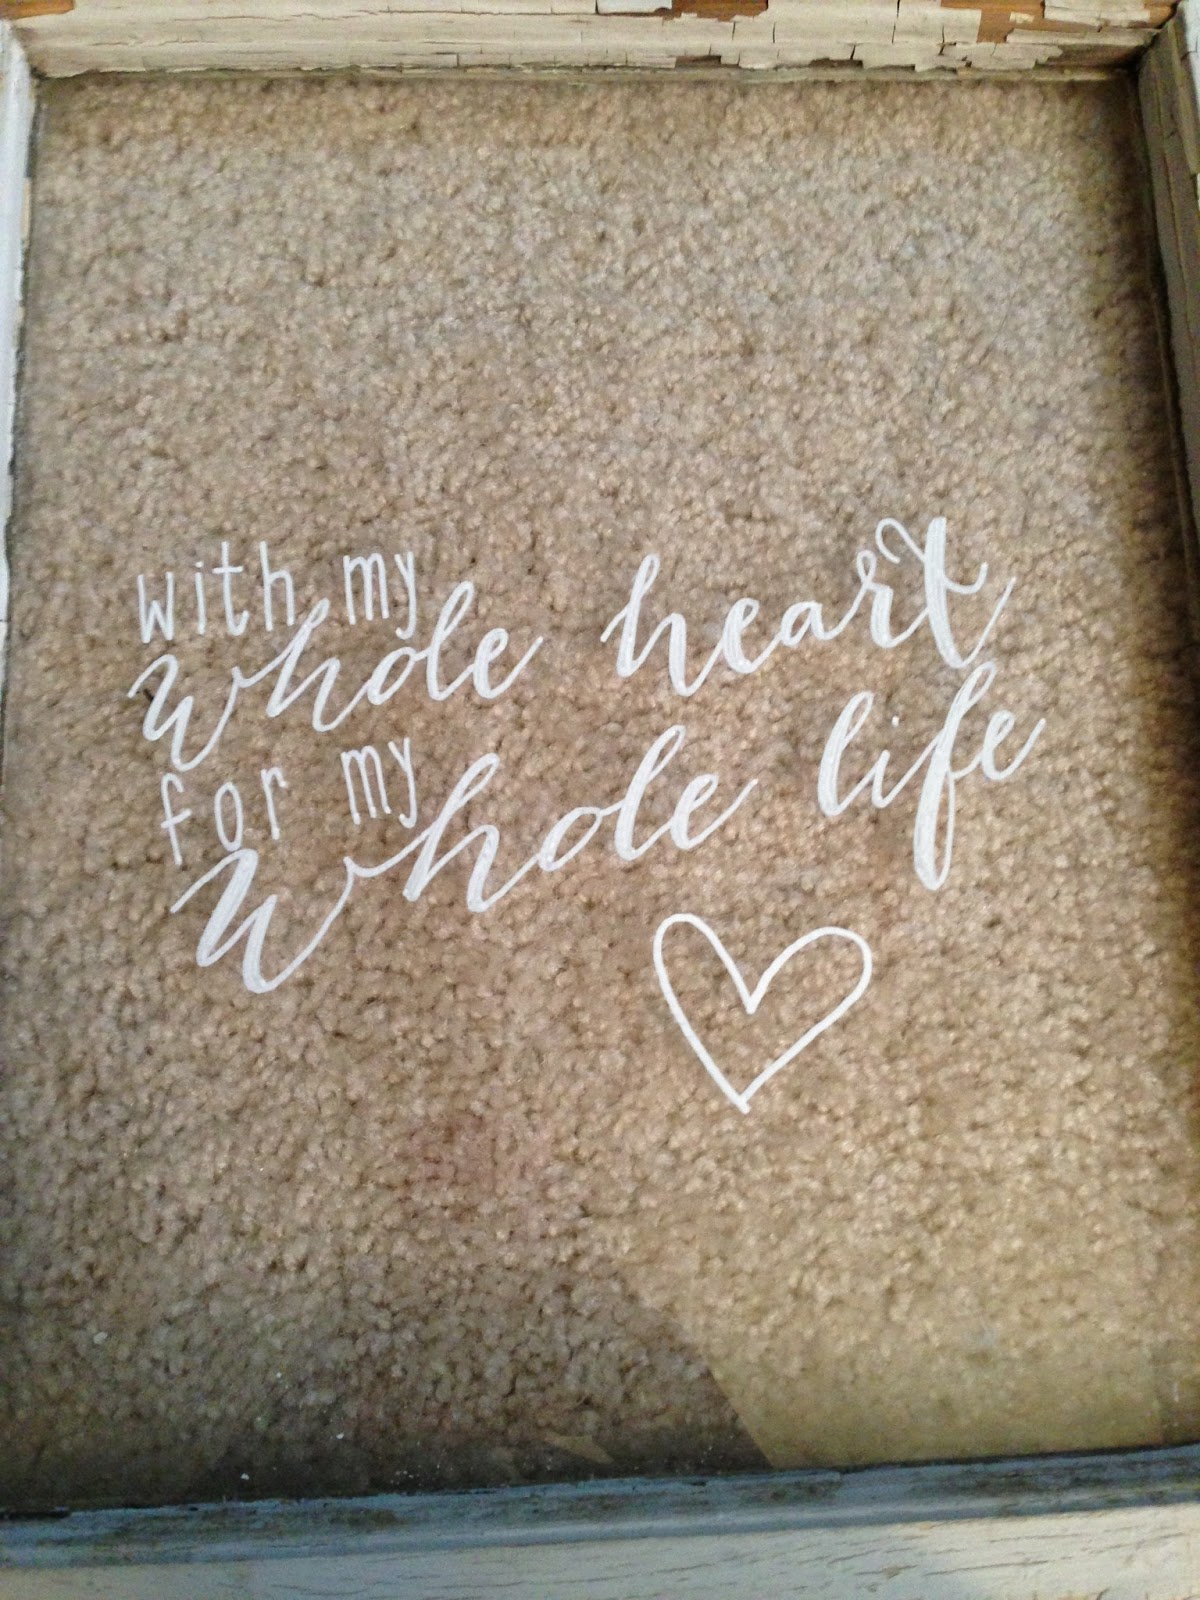 with my
whole heart
for my
whole life